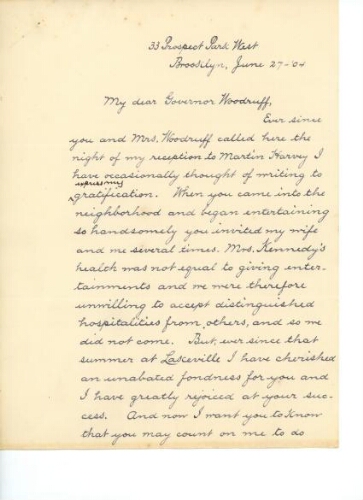 33 Prospect Park West
Brooklyn, June 27-'04
My dear Governor Woodruff,
Ever since
you and Mrs. Woodruff called here the
night of my reception to Martin Harvey I
have occasionally thought of writing to
express my
gratification. When you came into the
neighborhood and began entertaining
so handsomely you invited my wife
and me several times. Mrs. Kennedy's
health was not equal to giving enter-
tainments and we were therefore
unwilling to accept distinguished
hospitalities from others, and so we
did not come. But, ever since that
summer at Lakeville I have cherished
an unabated fondness for you and
I have greatly rejoiced at your suc-
cess. And now I want you to know
that you may count on me to do